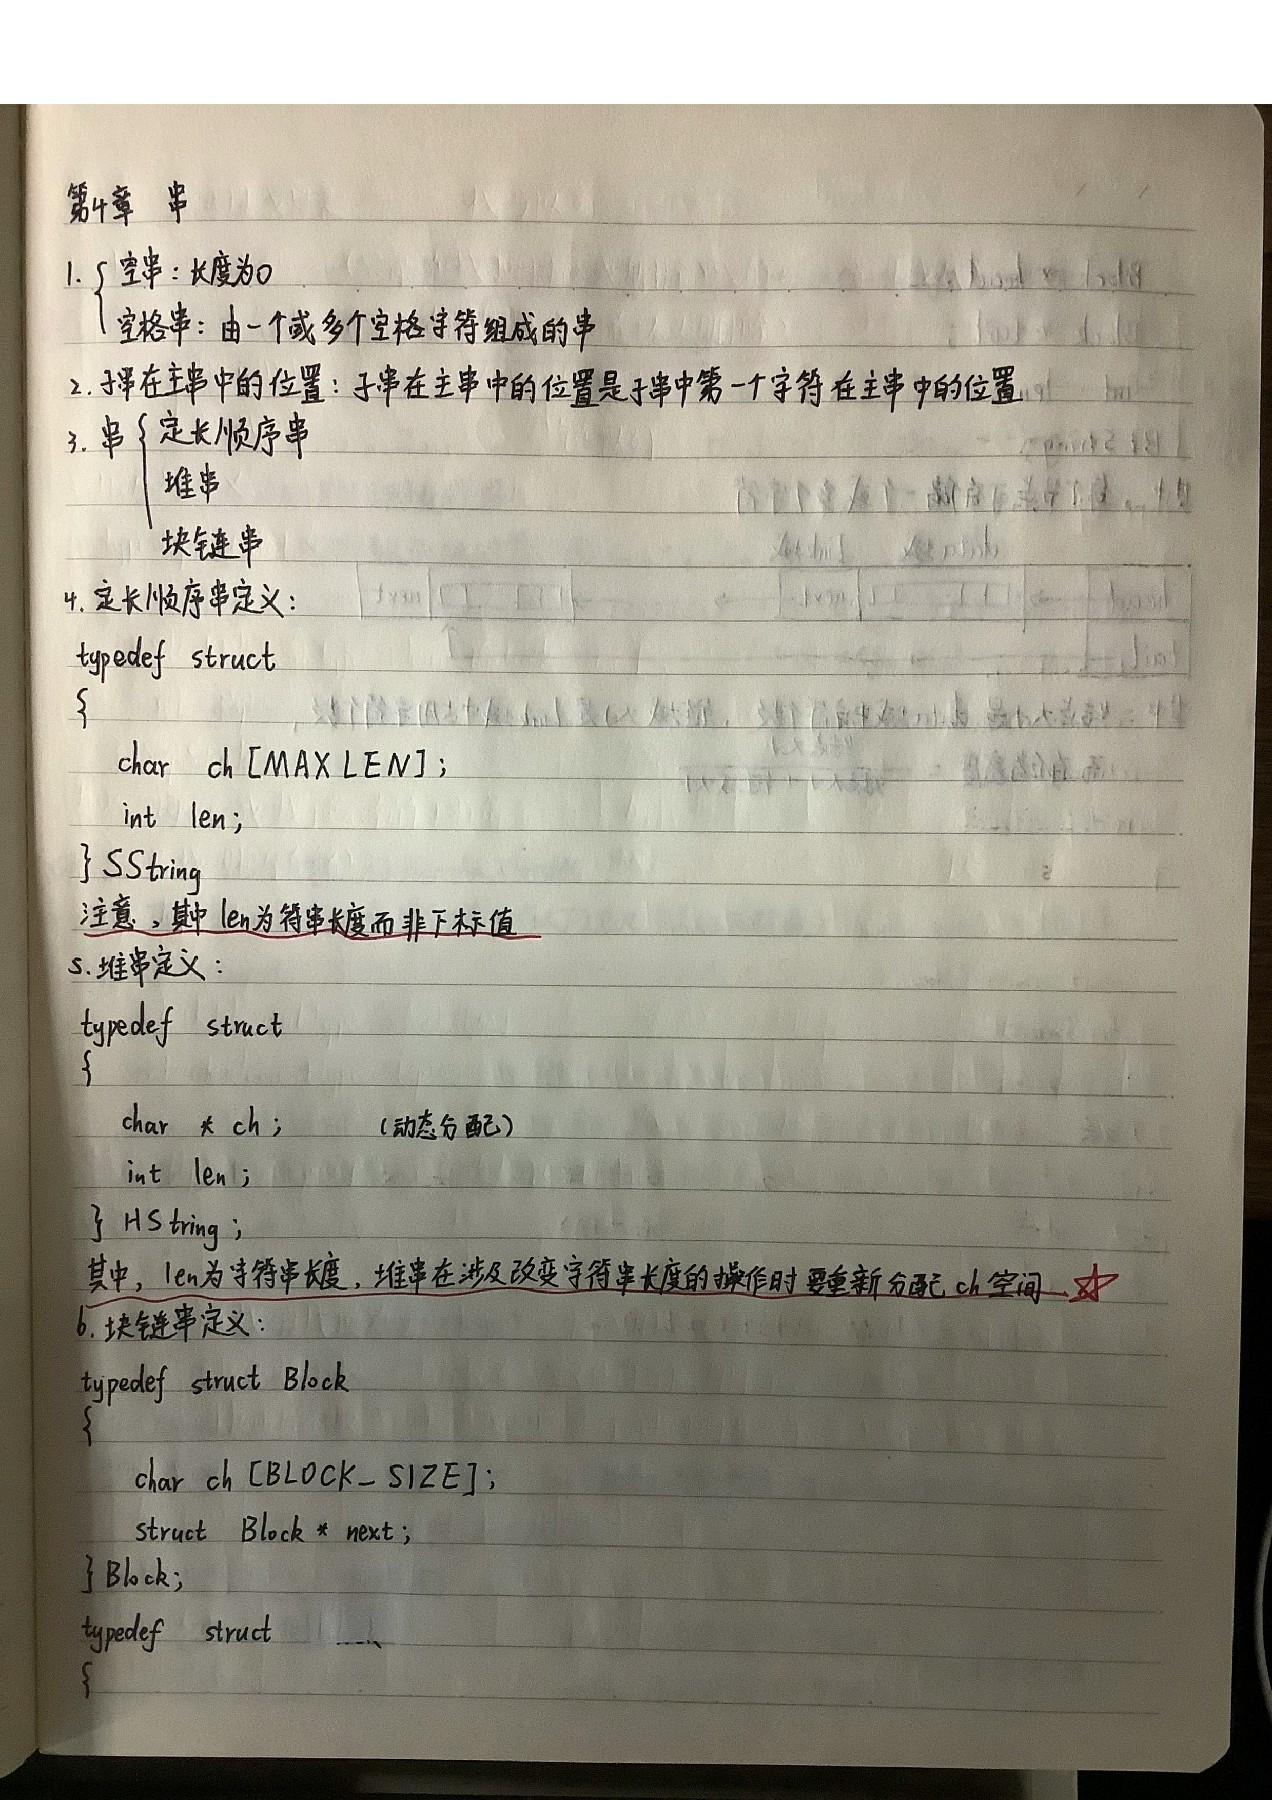 第4章 串
1. { 空串：长度为0
空格串：由一个或多个空格字符组成的串
2. 子串在主串中的位置：子串在主串中的位置是子串中第一个字符在主串中的位置
3. 串 { 定长顺序串
堆串
块链串
4. 定长顺序串定义：
typedef struct
{
char ch [MAXLEN];
int len;
} SString
注意，其中len为符串长度而非下标值
5. 堆串定义：
typedef struct
{
char * ch; (动态分配)
int len;
} HString;
其中，len为字符串长度，堆串在涉及改变字符串长度的操作时要重新分配ch空间 ☆
6. 块链串定义：
typedef struct Block
{
char ch [BLOCK_SIZE];
struct Block * next;
} Block;
typedef struct
{